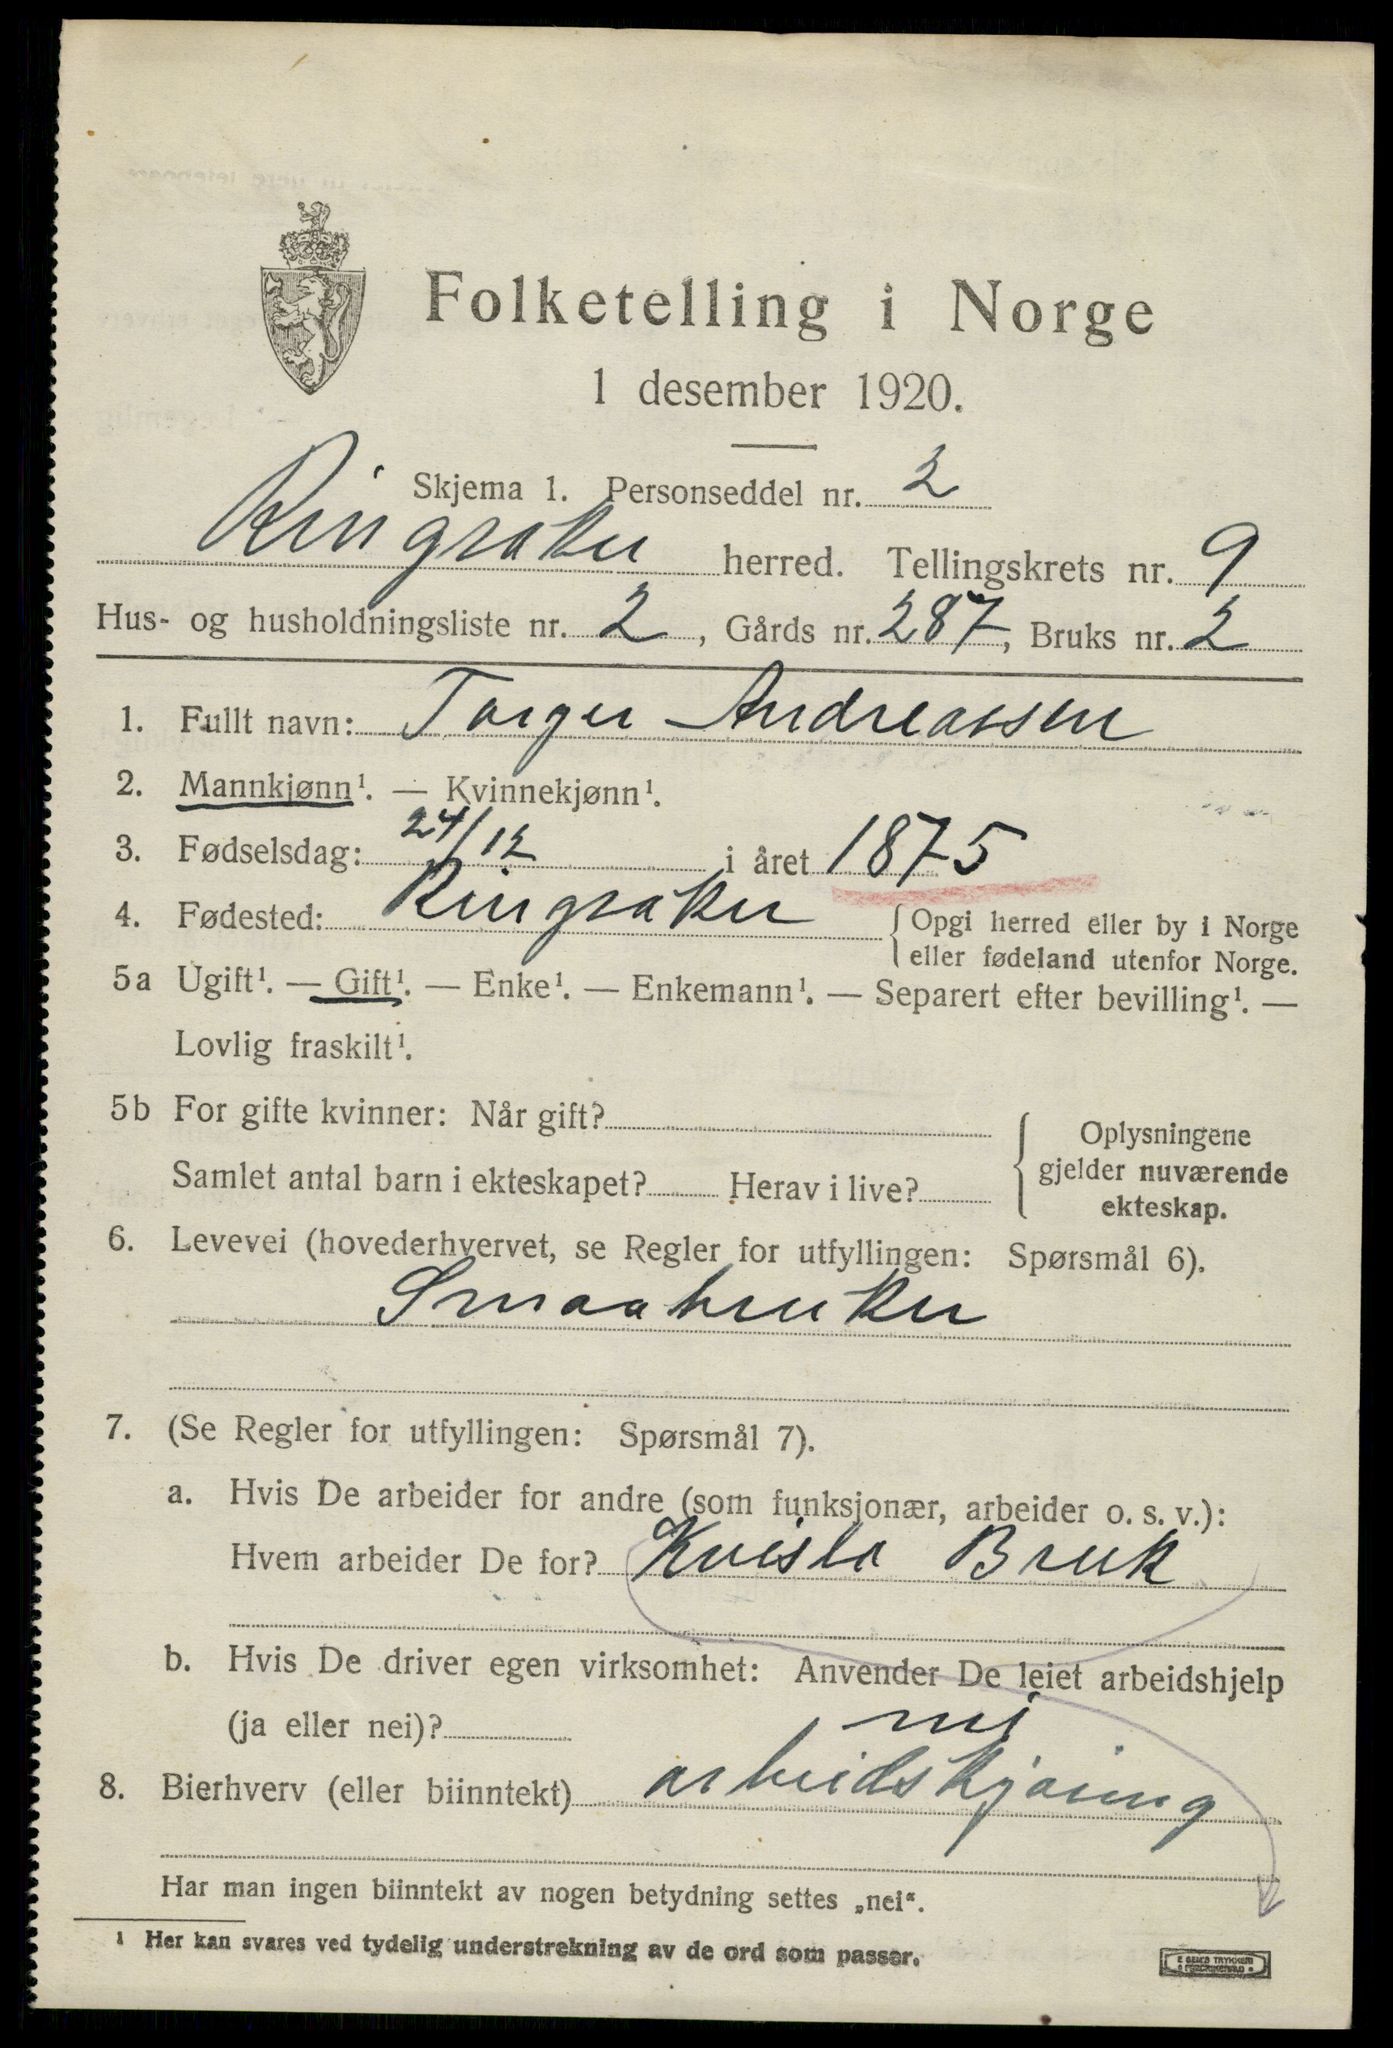 Folketelling i Norge
1 desember 1920.
Skjema 1. Personseddel nr. 2
Ringsaker herred. Tellingskrets nr. 9
Hus- og husholdningsliste nr. 2, Gårds nr. 287, Bruks nr. 2
1. Fullt navn: Torger Andreassen
2. Mannkjønn¹. — Kvinnekjønn¹.
3. Fødselsdag: 24/12 i året 1875
4. Fødested: Ringsaker { Opgi herred eller by i Norge
eller fødeland utenfor Norge.
5a Ugift¹. — Gift¹. — Enke¹. — Enkemann¹. — Separert efter bevilling¹. —
Lovlig fraskilt¹.
5b For gifte kvinner: Når gift?
Samlet antal barn i ekteskapet? Herav i live?
{ Oplysningene
gjelder nuværende
ekteskap.
6. Levevei (hovederhvervet, se Regler for utfyllingen: Spørsmål 6).
Smaabruker
7. (Se Regler for utfyllingen: Spørsmål 7).
a. Hvis De arbeider for andre (som funksjonær, arbeider o. s. v.):
Hvem arbeider De for? Kvisla Bruk
b. Hvis De driver egen virksomhet: Anvender De leiet arbeidshjelp
(ja eller nei)? nei
8. Bierhverv (eller biinntekt) arbeidskjøring
Har man ingen biinntekt av nogen betydning settes „nei“.
¹ Her kan svares ved tydelig understrekning av de ord som passer.